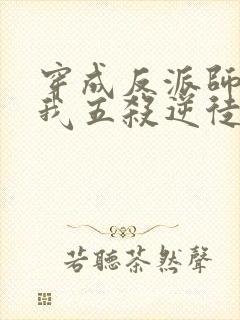 穿成反派師
我五殺逆徒
若聽茶然聲